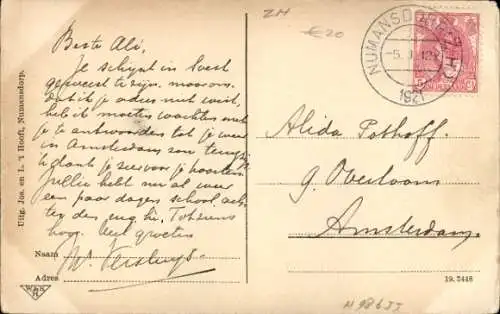 ZH
€20
NUMANSDORP
-5. 12
1921
Beste Ali,
Je schijnt in Soest
geweest te zijn, waarom
dat ik je adres niet wist,
heb ik moeten wachten met
je te antwoorden tot je weer
in Amsterdam zou terug
Je dank je zeer voor je kaarten
Jullie hebt nu al weer
een paar dagen school ach-
ter den rug, hè. Tot ziens
hoor. Veel groeten
Naam W. Versluys
Adres
Alida Pothoff.
g. Overtoom
Amsterdam.
Uitg. Jos. en L. 't Hooft, Numansdorp.
19. 5448